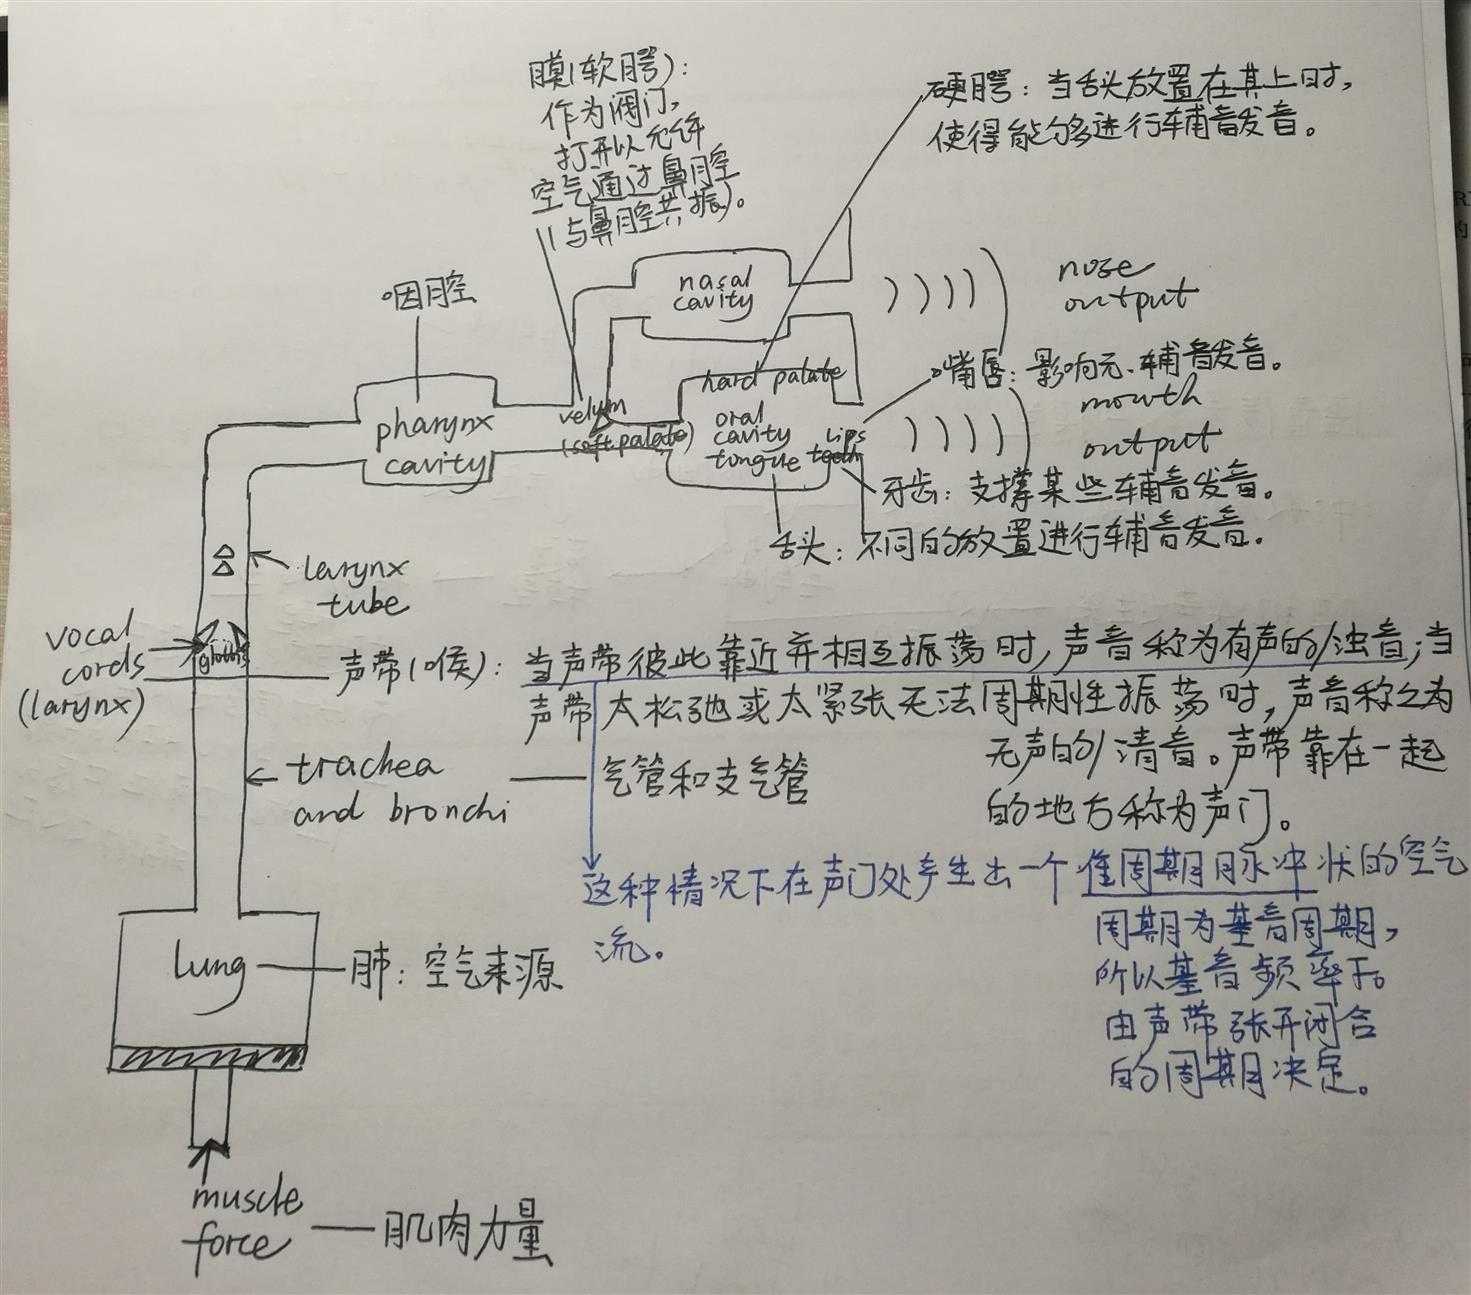 膜(软腭):
作为阀门,
打开以允许
空气通过鼻腔
(与鼻腔共振)。
硬腭:当舌头放置在其上时,
使得能够进行辅音发音。
nasal
cavity
nose
output
咽腔
嘴唇:影响元、辅音发音。
mouth
output
hard palate
velum
(soft palate)
oral
cavity
tongue
lips
teeth
pharynx
cavity
牙齿:支撑某些辅音发音。
舌头:不同的放置进行辅音发音。
larynx
tube
vocal
cords
(larynx)
glottis
声带(喉):当声带彼此靠近并相互振荡时,声音称为有声的/浊音;当
声带太松弛或太紧张无法周期性振荡时,声音称之为
无声的/清音。声带靠在一起
的地方称为声门。
trachea
and bronchi
气管和支气管
这种情况下在声门处产生出一个准周期脉冲状的空气
流。
周期为基音周期,
所以基音频率
由声带张开闭合
的周期决定。
lung
肺:空气来源
muscle
force
肌肉力量